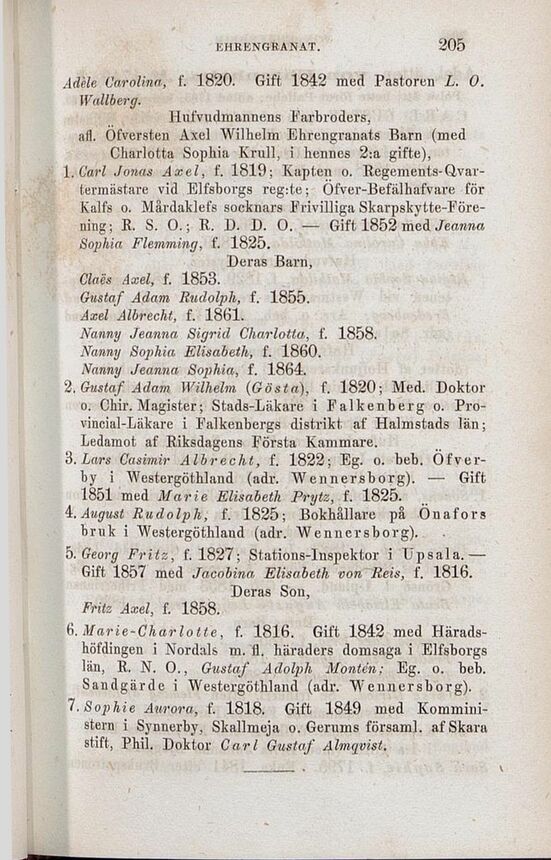 EHRENGRANAT. 205
Adèle Carolina, f. 1820. Gift 1842 med Pastoren L. O.
Wallberg.
Hufvudmannens Farbroders,
afl. Öfversten Axel Wilhelm Ehrengranats Barn (med
Charlotta Sophia Krull, i hennes 2:a gifte),
1. Carl Jonas Axel, f. 1819; Kapten o. Regements-Qvar-
termästare vid Elfsborgs reg:te; Öfver-Befälhafvare för
Kalfs o. Mårdaklefs socknars Frivilliga Skarpskytte-Före-
ning; R. S. O.; R. D. D. O. — Gift 1852 med Jeanna
Sophia Flemming, f. 1825.
Deras Barn,
Claës Axel, f. 1853.
Gustaf Adam Rudolph, f. 1855.
Axel Albrecht, f. 1861.
Nanny Jeanna Sigrid Charlotta, f. 1858.
Nanny Sophia Elisabeth, f. 1860.
Nanny Jeanna Sophia, f. 1864.
2. Gustaf Adam Wilhelm (Gösta), f. 1820; Med. Doktor
o. Chir. Magister; Stads-Läkare i Falkenberg o. Pro-
vincial-Läkare i Falkenbergs distrikt af Halmstads län;
Ledamot af Riksdagens Första Kammare.
3. Lars Casimir Albrecht, f. 1822; Eg. o. beb. Öfver-
by i Westergöthland (adr. Wennersborg). — Gift
1851 med Marie Elisabeth Prytz, f. 1825.
4. August Rudolph, f. 1825; Bokhållare på Önafors
bruk i Westergöthland (adr. Wennersborg).
5. Georg Fritz, f. 1827; Stations-Inspektor i Upsala. —
Gift 1857 med Jacobina Elisabeth von Reis, f. 1816.
Deras Son,
Fritz Axel, f. 1858.
6. Marie-Charlotte, f. 1816. Gift 1842 med Härads-
höfdingen i Nordals m. fl. häraders domsaga i Elfsborgs
län, R. N. O., Gustaf Adolph Montén; Eg. o. beb.
Sandgärde i Westergöthland (adr. Wennersborg).
7. Sophie Aurora, f. 1818. Gift 1849 med Kommini-
stern i Synnerby, Skallmeja o. Gerums församl. af Skara
stift, Phil. Doktor Carl Gustaf Almqvist.